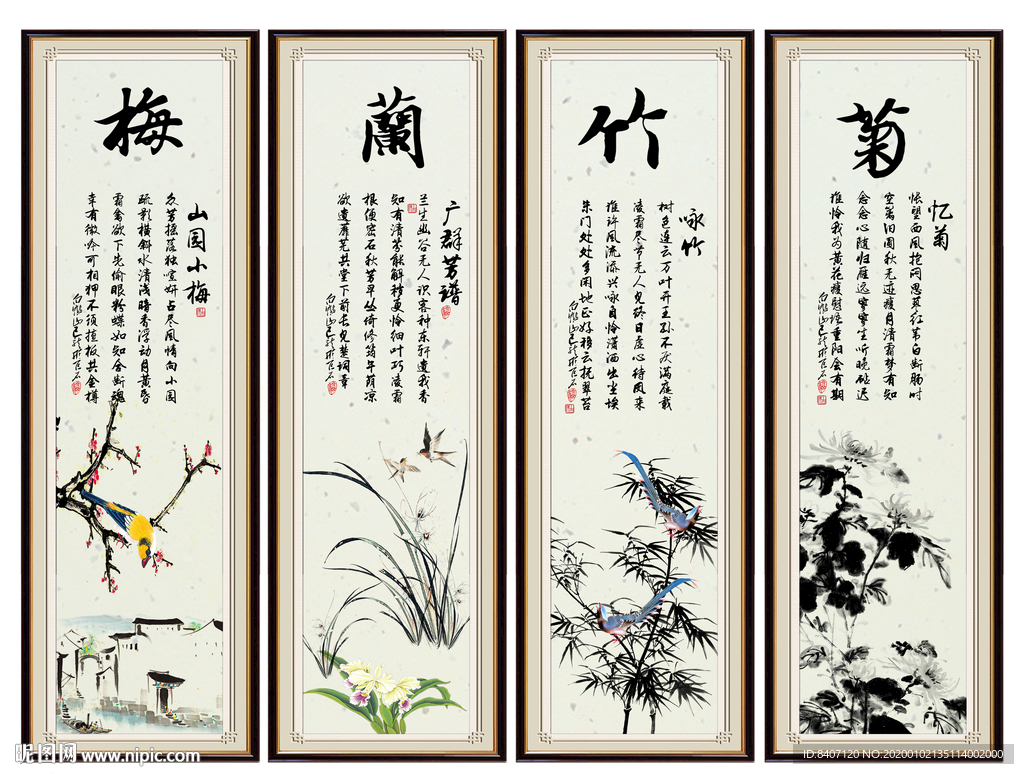 梅
山园小梅
众芳摇落独喧妍占尽风情向小园
疏影横斜水清浅暗香浮动月黄昏
霜禽欲下先偷眼粉蝶如知合断魂
幸有微吟可相狎不须檀板共金樽
蘭
广群芳谱
兰生幽谷无人识客种东轩遗我香
知有清芬能解秽更怜细叶巧凌霜
根便密石秋芳早丛倚修筠午荫凉
欲遗蘼芜共堂下前长见楚词章
竹
咏竹
树色连云万叶开王孙不厌满庭栽
凌霜尽节无人见终日虚心待凤来
谁许风流添兴咏自怜潇洒出尘埃
朱门处处多闲地正好移云托翠苔
菊
忆菊
怅望西风抱闷思蓼红苇白断肠时
空篱旧圃秋无迹瘦月清霜梦有知
念念心随归雁远寥寥坐听晚砧迟
谁怜我为黄花瘦慰语重阳会有期
昵图网 www.nipic.com
ID:8407120 NO.20200102135114002000